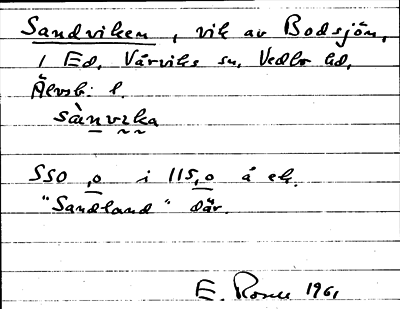 Sandviken, vik av Bodsjön,
i Ed, Värviks sn, Vedbo hd,
Älvsb. l.
sànvika
SSO ,o i 115,o å ek.
"Sandland" där.
E. 1961